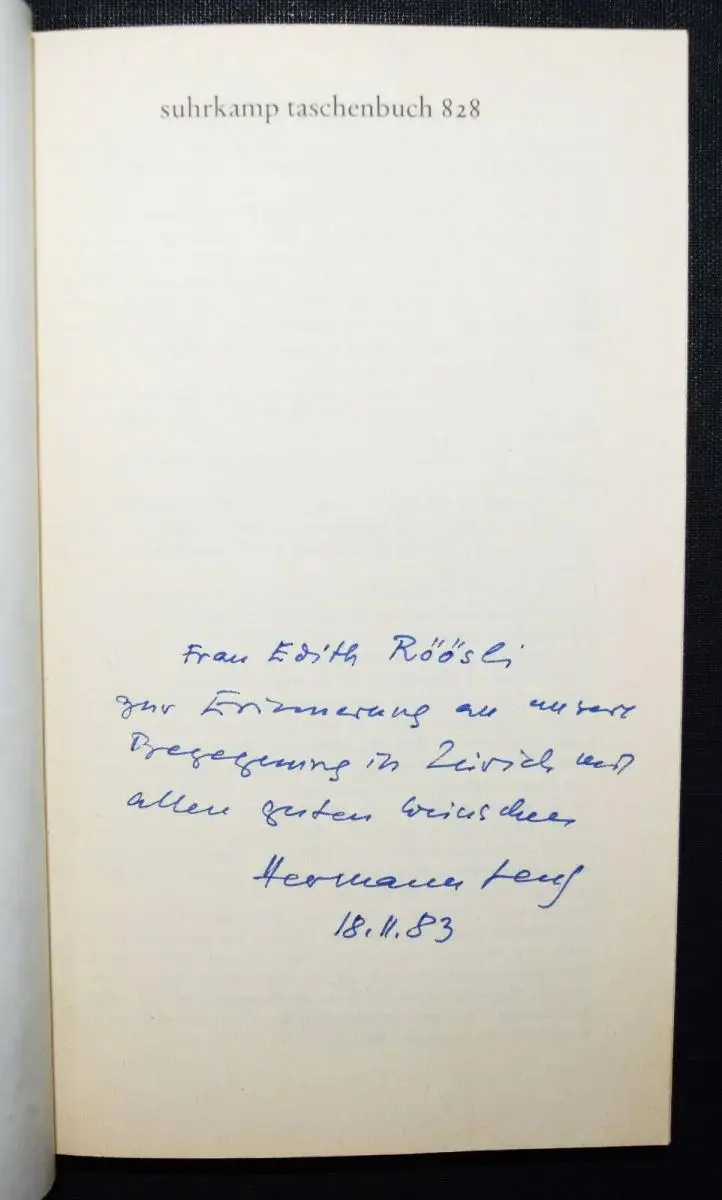 suhrkamp taschenbuch 828
Frau Edith Röösli
zur Erinnerung an unsere
Begegnung in Zürich mit
allen guten Wünschen
Hermann Lenz
18.11.83